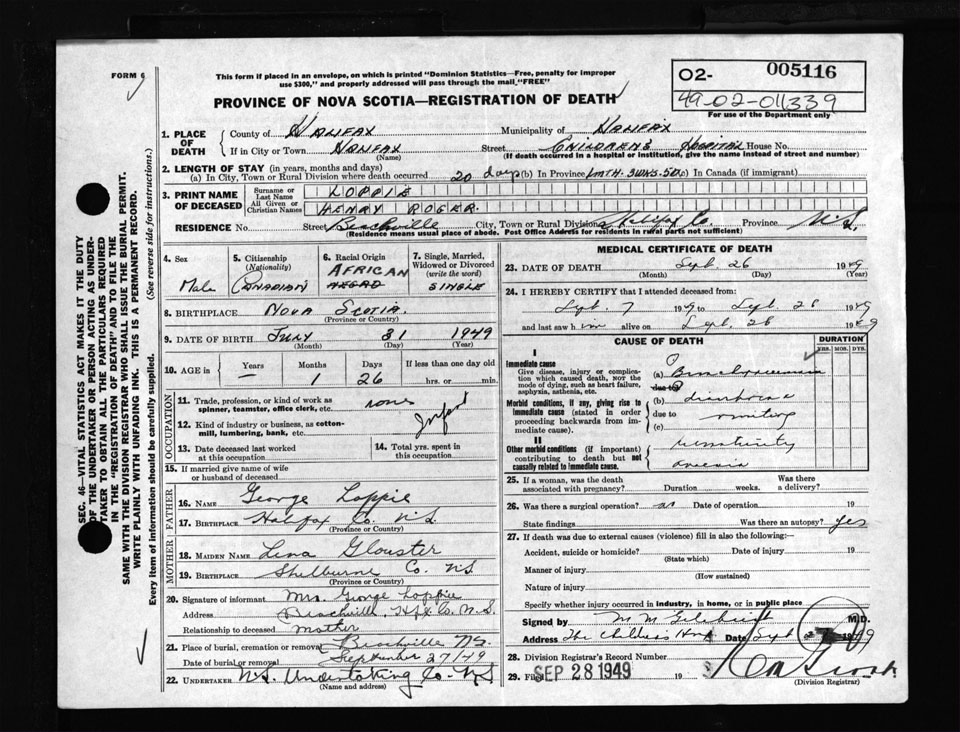 FORM 6
This form if placed in an envelope, on which is printed "Dominion Statistics—Free, penalty for improper
use $300," and properly addressed will pass through the mail "FREE"
PROVINCE OF NOVA SCOTIA—REGISTRATION OF DEATH
O2- 005116
49-02-011339
For use of the Department only
SEC. 46—VITAL STATISTICS ACT MAKES IT THE DUTY
OF THE UNDERTAKER OR PERSON ACTING AS UNDER-
TAKER TO OBTAIN ALL THE PARTICULARS REQUIRED
IN THE "REGISTRATION OF DEATH" AND TO FILE THE
SAME WITH THE DIVISION REGISTRAR WHO SHALL ISSUE THE BURIAL PERMIT.
WRITE PLAINLY WITH UNFADING INK. THIS IS A PERMANENT RECORD.
Every item of information should be carefully supplied. (See reverse side for instructions.)
1. PLACE OF DEATH
County of Halifax Municipality of Halifax
If in City or Town Halifax Street Childrens Hospital House No.
(Name) (If death occurred in a hospital or institution, give the name instead of street and number)
2. LENGTH OF STAY (in years, months and days)
(a) In City, Town or Rural Division where death occurred 20 days (b) In Province 1 MTH. 3 WKS. 5D. (c) In Canada (if immigrant)
3. PRINT NAME OF DECEASED
Surname or Last Name LOPPIE
All Given or Christian Names HENRY ROGER
RESIDENCE No. Street Beachville City, Town or Rural Division Halifax Co. Province N.S.
(Residence means usual place of abode. Post Office Address for residents in rural parts not sufficient)
4. Sex Male
5. Citizenship (Nationality) CANADIAN
6. Racial Origin AFRICAN NEGRO
7. Single, Married, Widowed or Divorced (write the word) SINGLE
8. BIRTHPLACE NOVA SCOTIA
(Province or Country)
9. DATE OF BIRTH JULY 31 1949
(Month) (Day) (Year)
10. AGE in Years — Months 1 Days 26 If less than one day old hrs. or min.
OCCUPATION
11. Trade, profession, or kind of work as spinner, teamster, office clerk, etc. none
12. Kind of industry or business, as cotton-mill, lumbering, bank, etc. Infant
13. Date deceased last worked at this occupation
14. Total yrs. spent in this occupation
15. If married give name of wife or husband of deceased
FATHER
16. Name George Loppie
17. Birthplace Halifax Co. N.S.
(Province or Country)
MOTHER
18. Maiden Name Lena Glouster
19. Birthplace Shelburne Co. N.S.
(Province or Country)
20. Signature of informant Mrs. George Loppie
Address Beachville, Hfx. Co. N.S.
Relationship to deceased mother
21. Place of burial, cremation or removal Beachville N.S.
Date of burial or removal September 27/49
22. UNDERTAKER N.S. Undertaking Co. N.S.
(Name and address)
MEDICAL CERTIFICATE OF DEATH
23. DATE OF DEATH Sept. 26 1949
(Month) (Day) (Year)
24. I HEREBY CERTIFY that I attended deceased from:
Sept. 7 1949 to Sept. 26 1949
and last saw him alive on Sept. 26 1949
CAUSE OF DEATH
DURATION
YRS. MOS. DYS.
I
Immediate cause
Give disease, injury or complication which caused death, NOT the mode of dying, such as heart failure, asphyxia, asthenia, etc.
(a) Bronchopneumonia
due to
Morbid conditions, if any, giving rise to immediate cause (stated in order proceeding backwards from immediate cause).
(b) diarrhoea
due to vomiting
(c)
II
Other morbid conditions (if important) contributing to death but not causally related to immediate cause.
prematurity
25. If a woman, was the death associated with pregnancy? Duration weeks. Was there a delivery?
26. Was there a surgical operation? no Date of operation 19
State findings Was there an autopsy? yes
27. If death was due to external causes (violence) fill in also the following:—
Accident, suicide or homicide? Date of injury 19
(State which)
Manner of injury
(How sustained)
Nature of injury
Specify whether injury occurred in industry, in home, or in public place
Signed by M.D.
Address The Children's Hosp. Date Sept 1949
28. Division Registrar's Record Number
29. Filed SEP 28 1949 19
(Division Registrar)